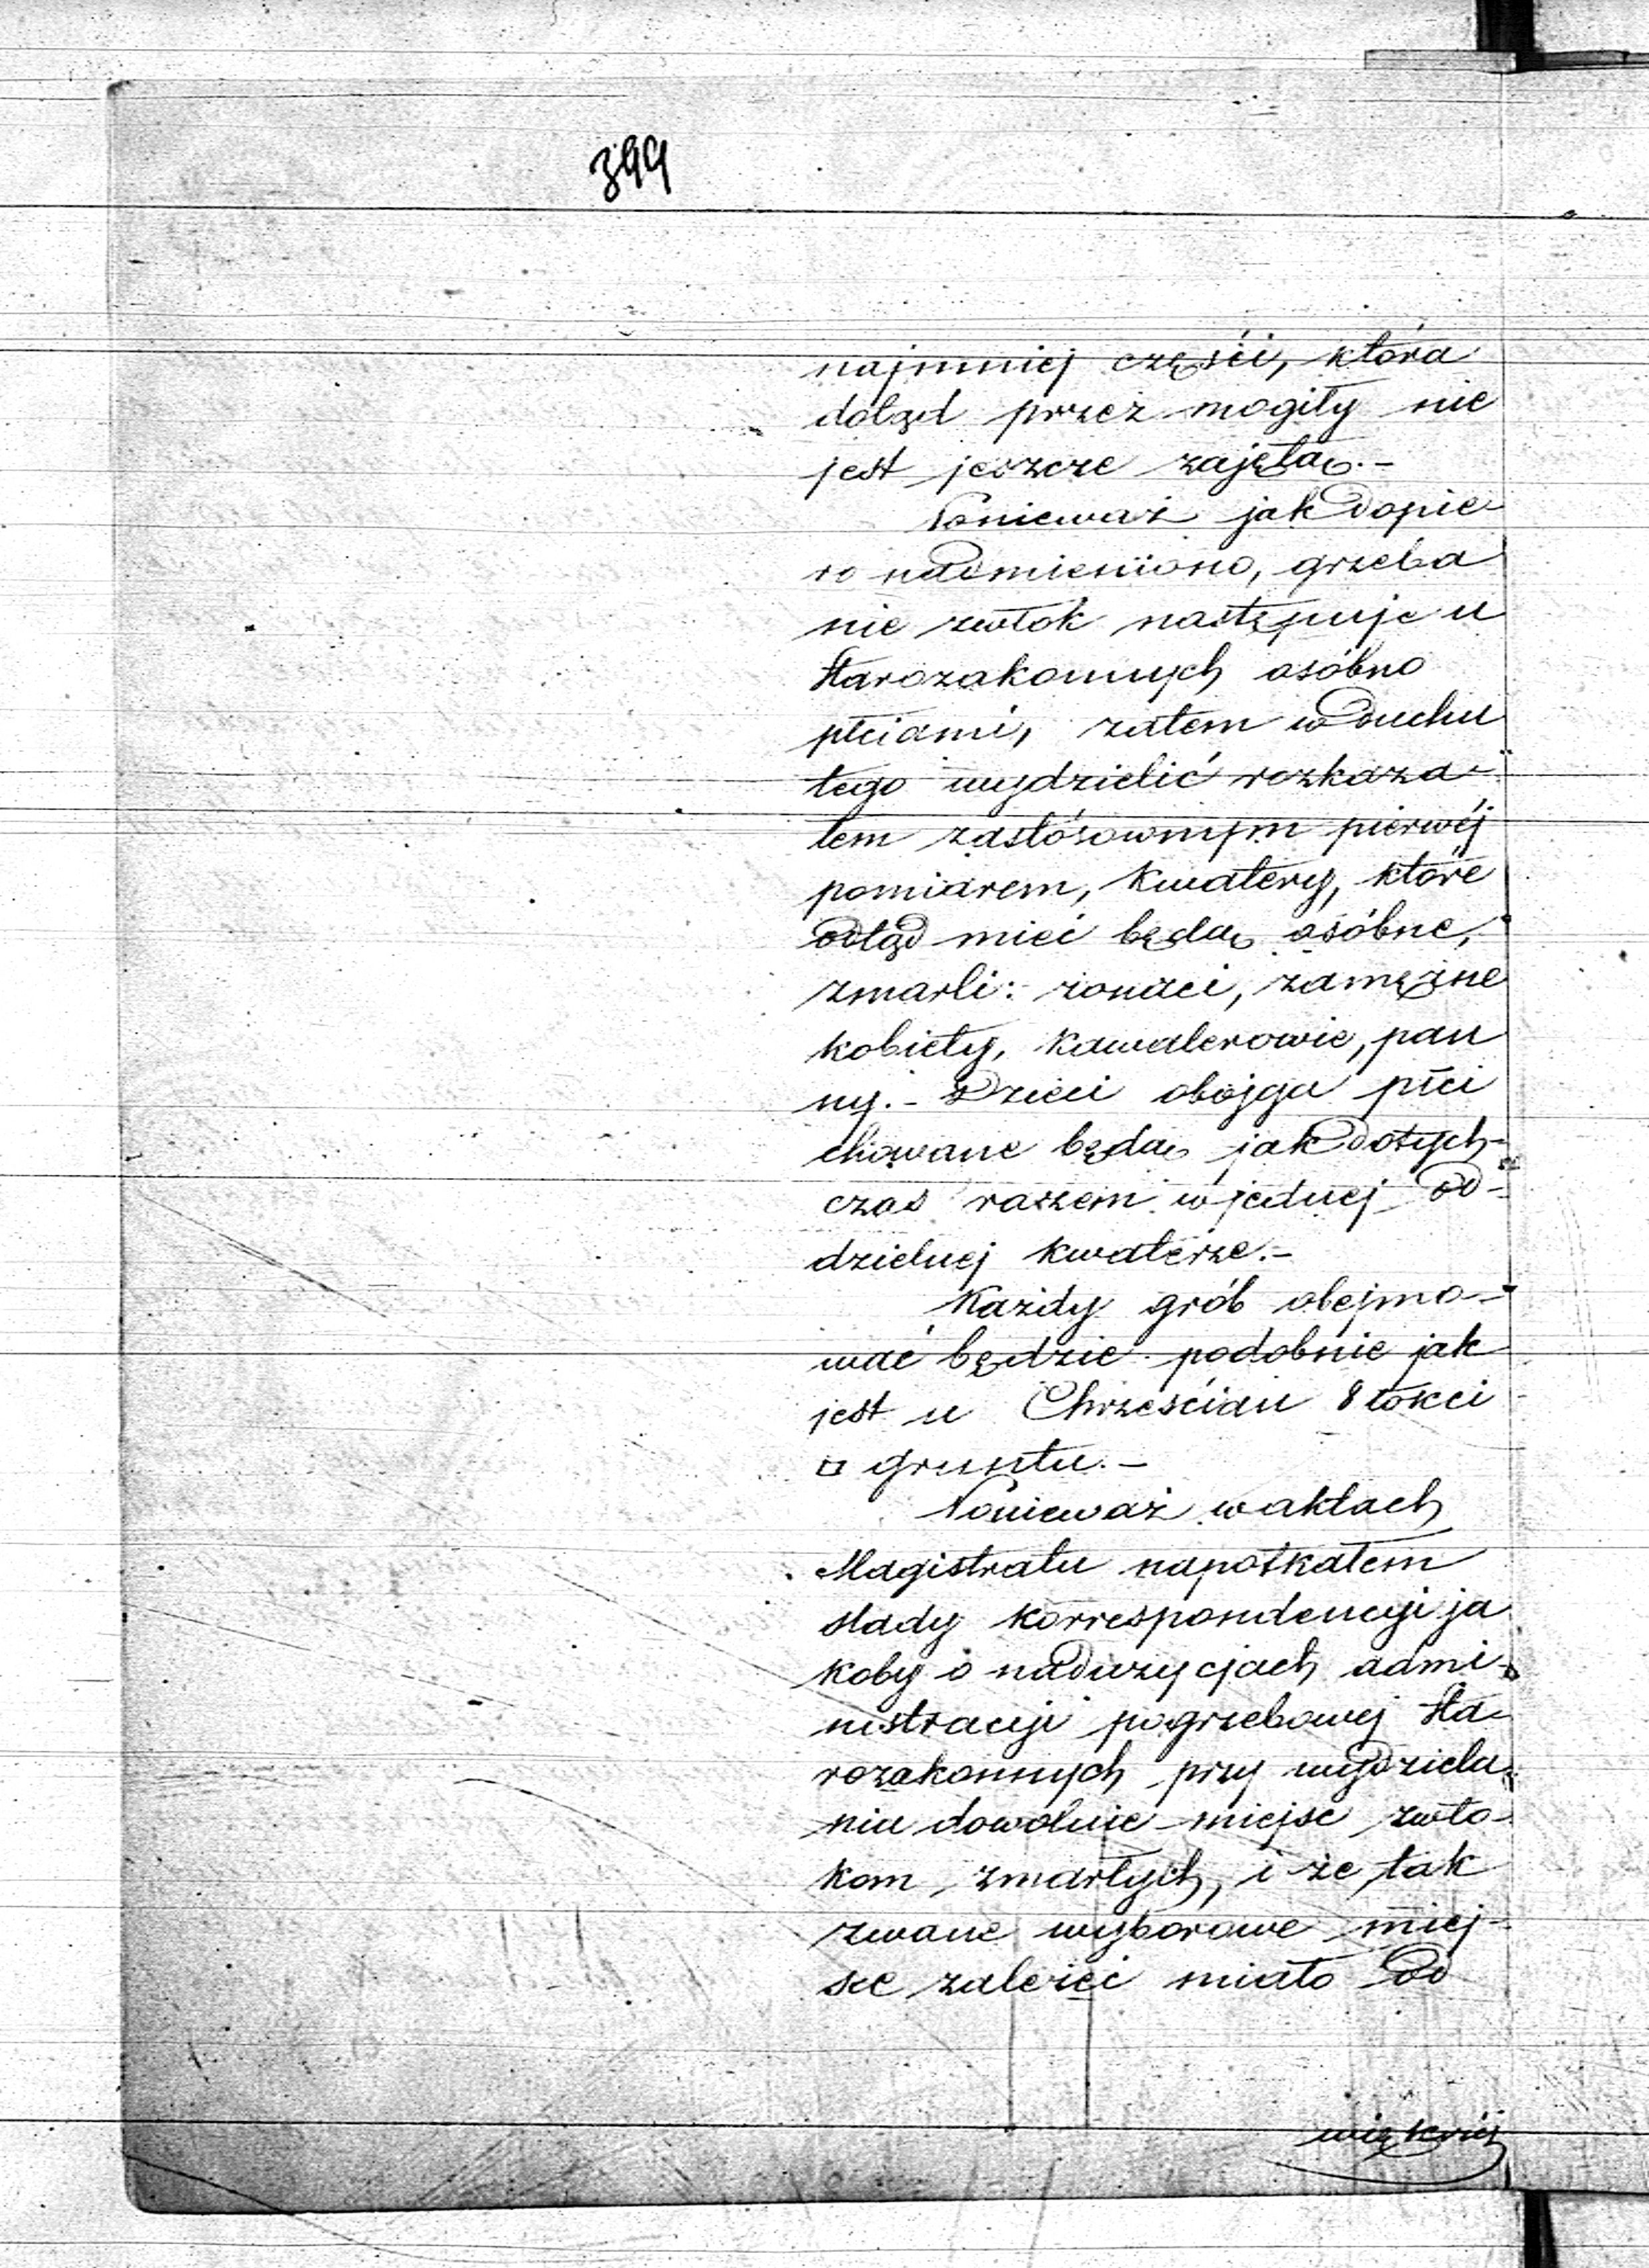 399
najmniej części, która
dotąd przez mogiły nie
jest jeszcze zajętą.-
Ponieważ jak dopie-
ro nadmieniiono, grzeba
nie zwłok następuje u
Starozakonnych osóbno
płciami, zatem w duchu
tego wydzielić rozkaza-
łem zastósownym pierwéj
pomiarem, kwatery, które
odtąd mieć będą osóbne,
zmarli: żonaci, zamężne
kobiety, kawalerowie, pan
ny.- Dzieci obojga płci
chowane będą jak dotych-
czas razem w jednej od-
dzielnej kwaterze.-
Każdy grób obejmo-
wać będzie podobnie jak
jest u Chrześcian 8 łokci
□ gruntu.-
Ponieważ w aktach
Magistratu napotkałem
ślady korrespondencyi ja
koby o nadużycjach admi-
nistracyi pogrzebowej Sta-
rozakonnych przy wydziela-
niu dowolnie miejsc zwło-
kom zmarłych, i że tak
zwane wyborowe miej-
sce zależeć miało od
większéj